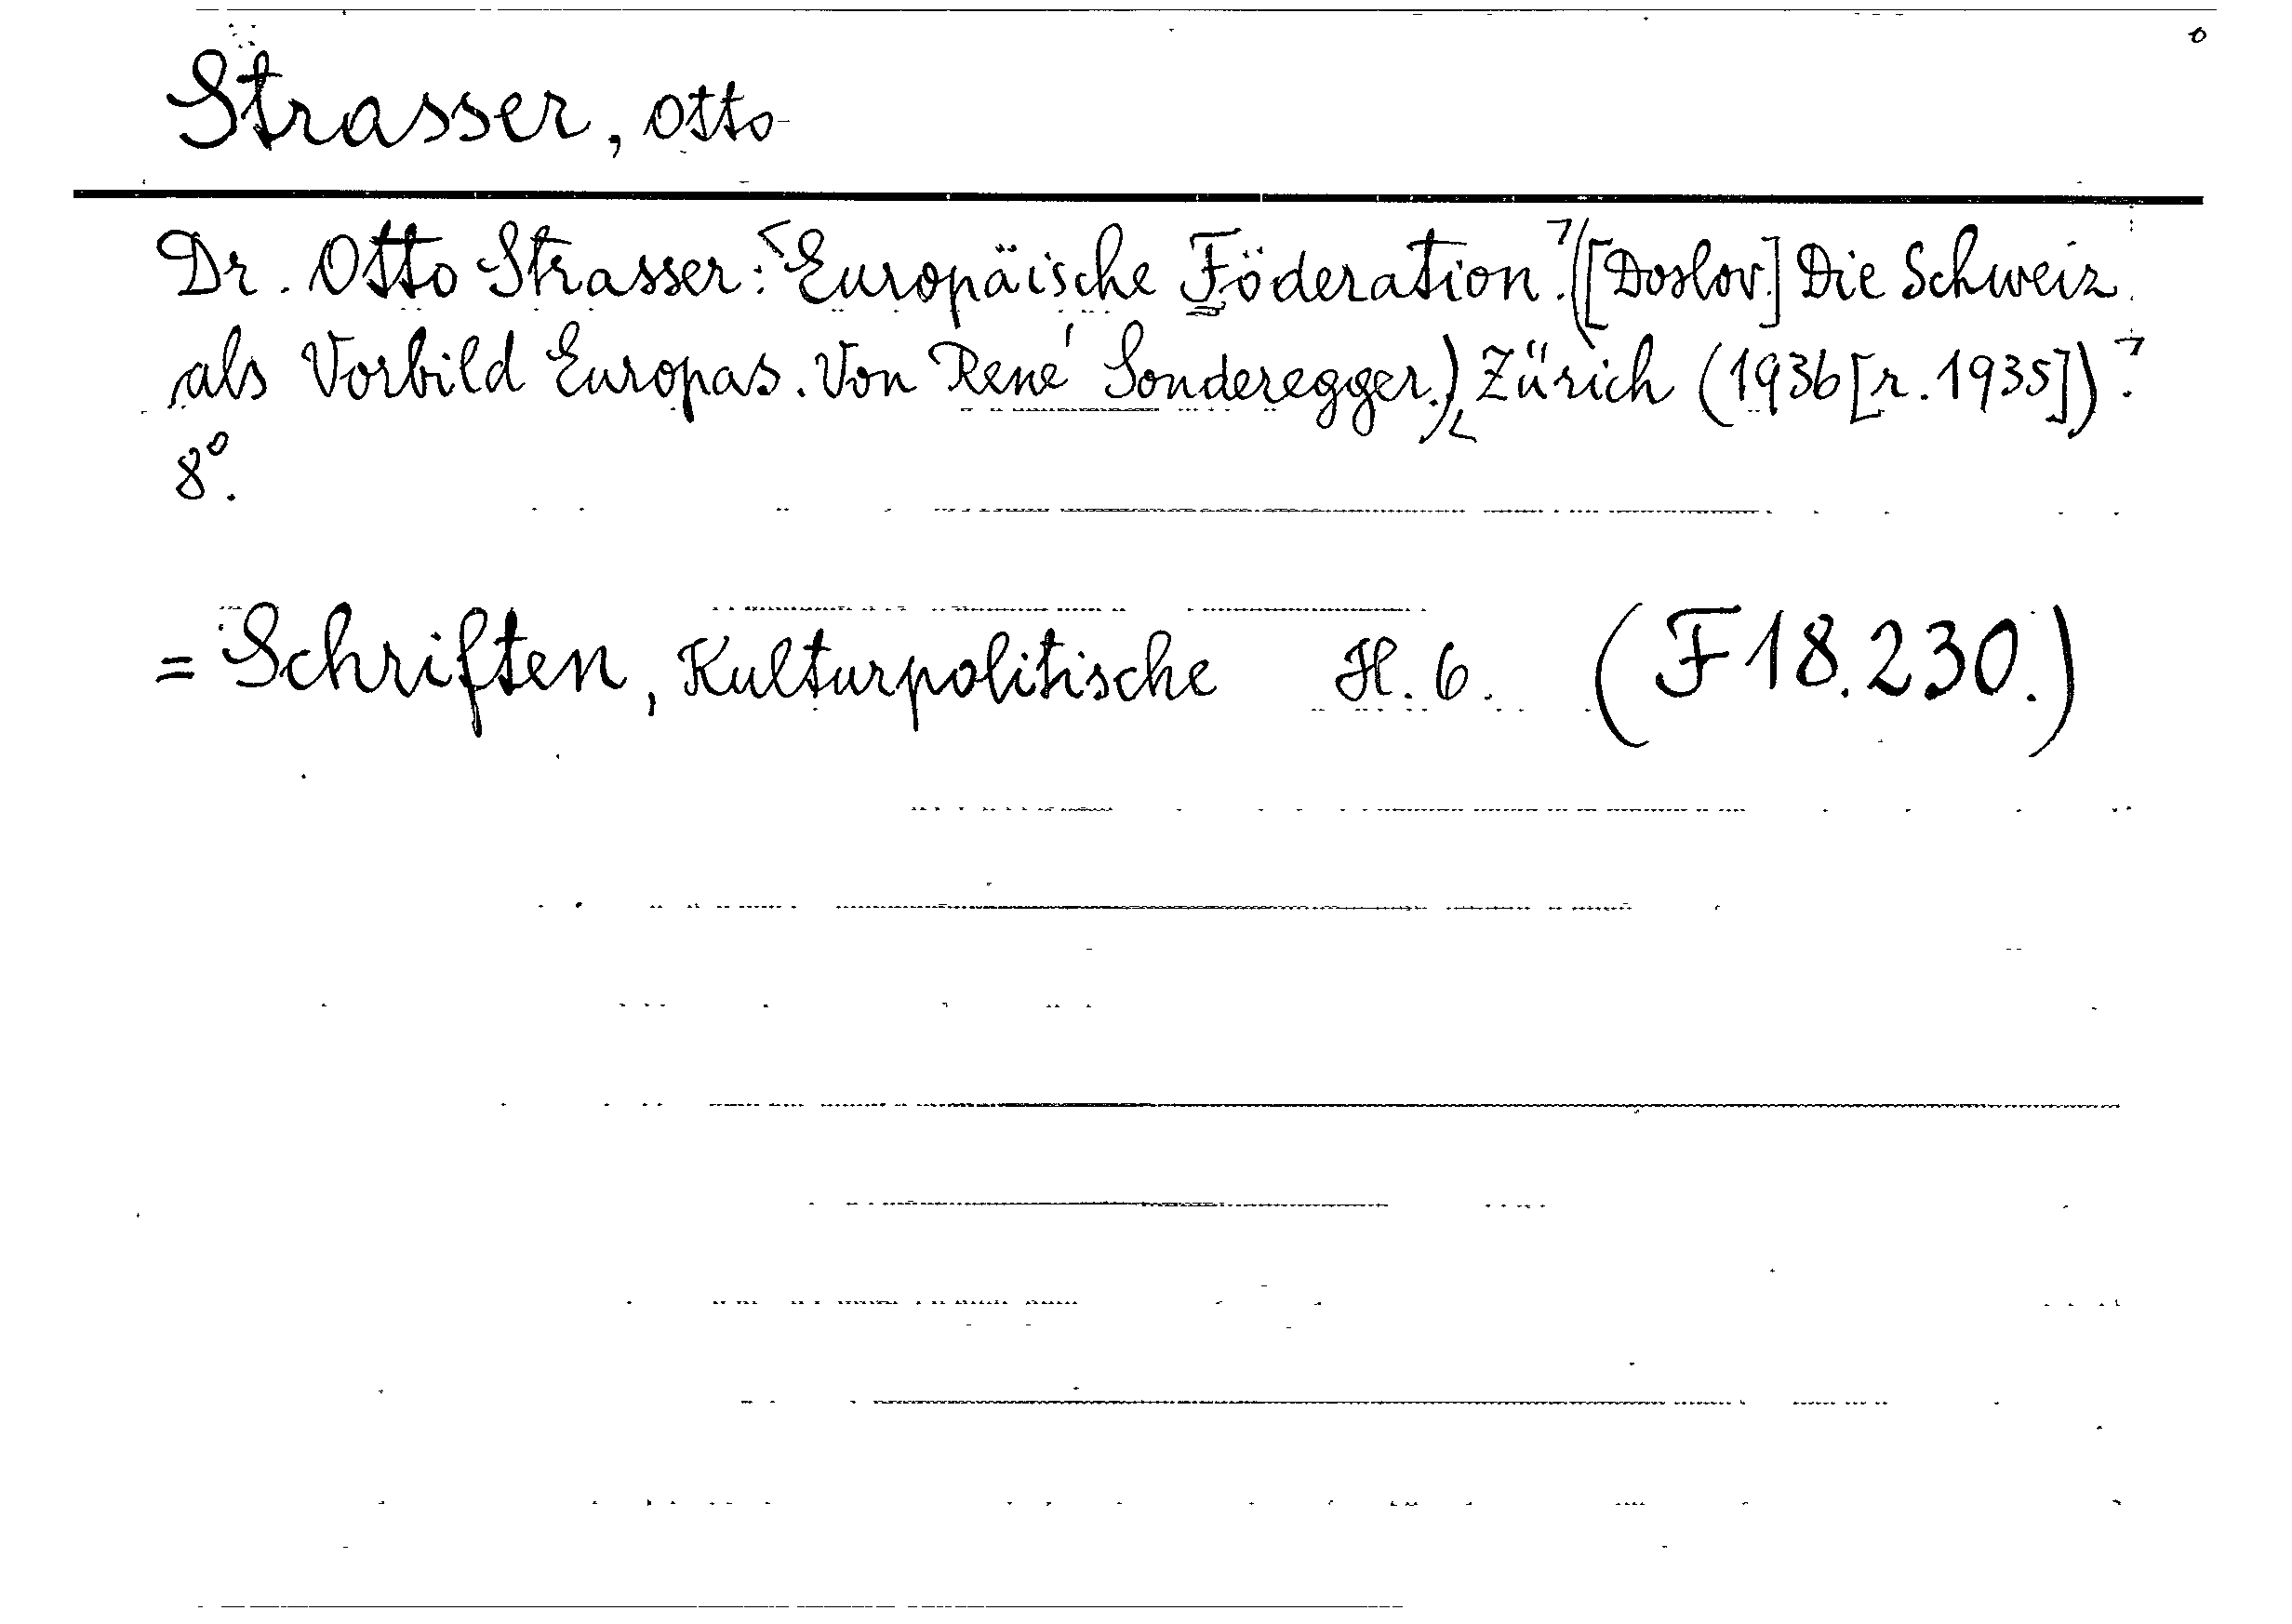 Strasser, Otto
Dr. Otto Strasser: Europäische Föderation. ([Doslov.] Die Schweiz
als Vorbild Europas. Von René Sonderegger.) Zürich (1936 [r. 1935]).
8°.
= Schriften, Kulturpolitische H. 6. (F 18.230.)